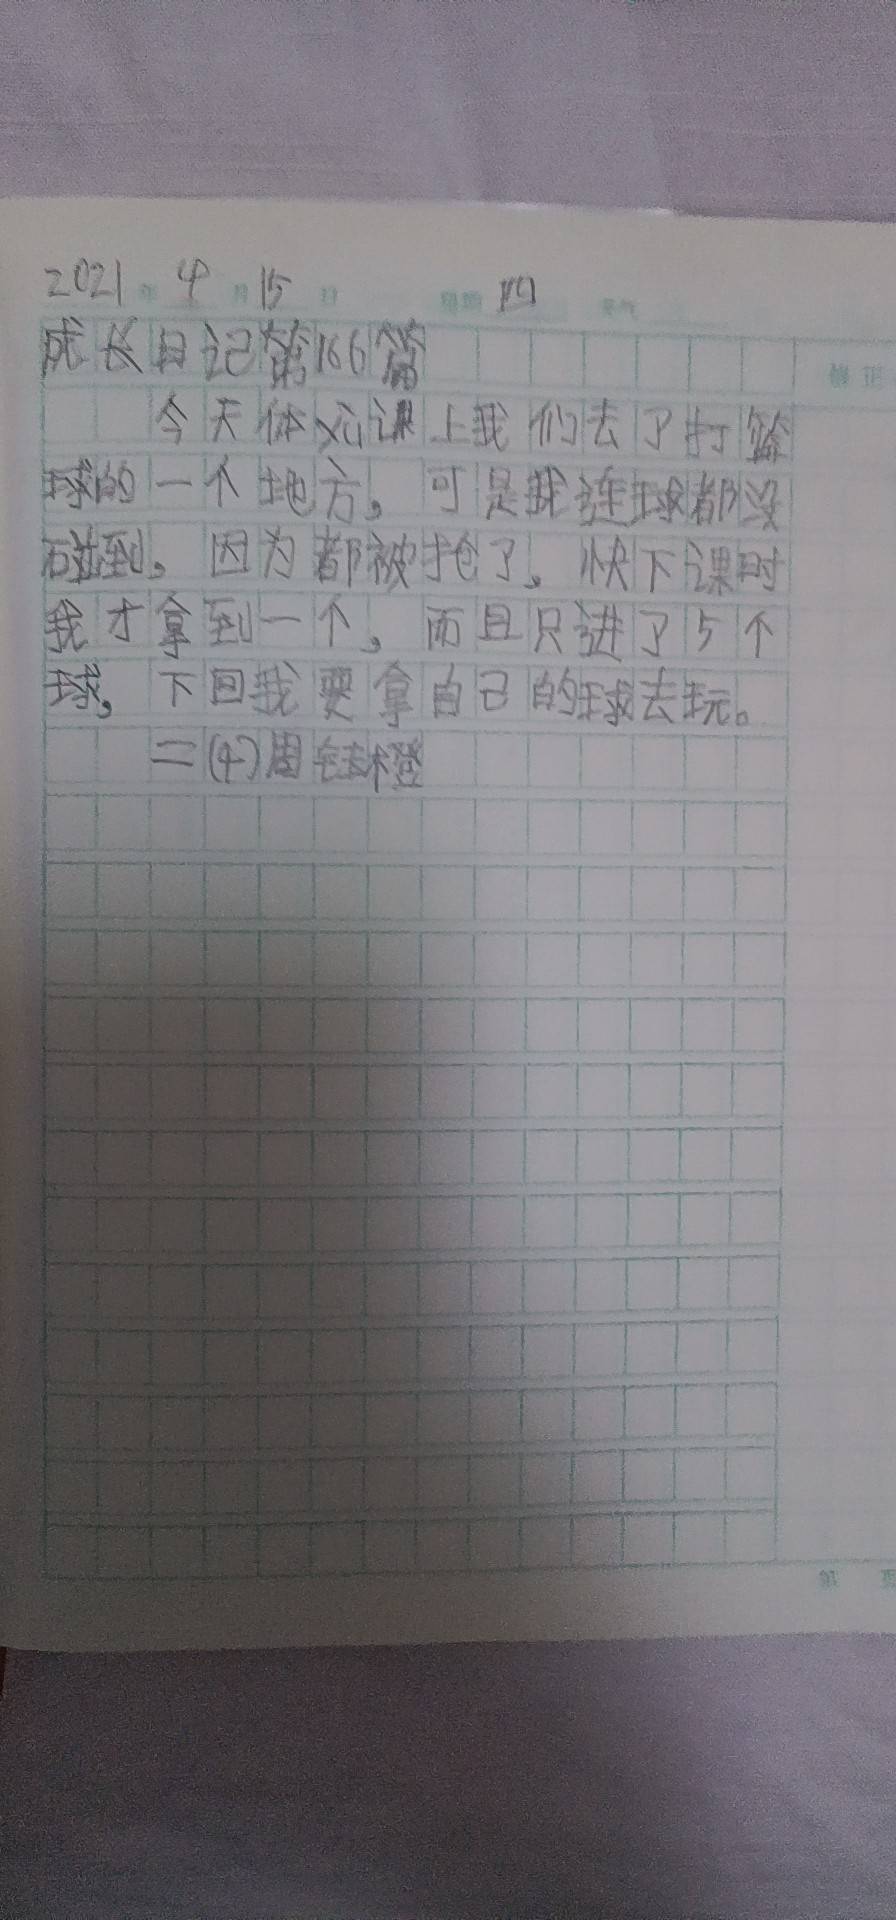 2021年4月15日 星期四 天气
成长日记第166篇
今天体育课上我们去了打篮
球的一个地方。可是我连球都没
碰到。因为都被抢了。快下课时
我才拿到一个。而且只进了5个
球。下回我要拿自己的球去玩。
二(4)周 橙
第 页